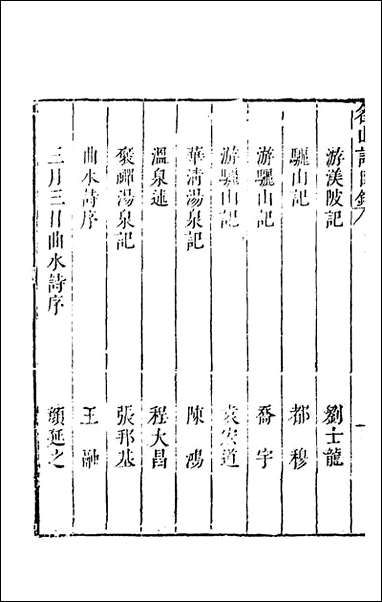 游渼陂記 劉士龍
驪山記 都穆
游驪山記 喬宇
游驪山記 袁宏道
華清湯泉記 陳鴻
溫泉述 程大昌
褒禪湯泉記 張邦基
曲水詩序 王融
三月三日曲水詩序 顏延之